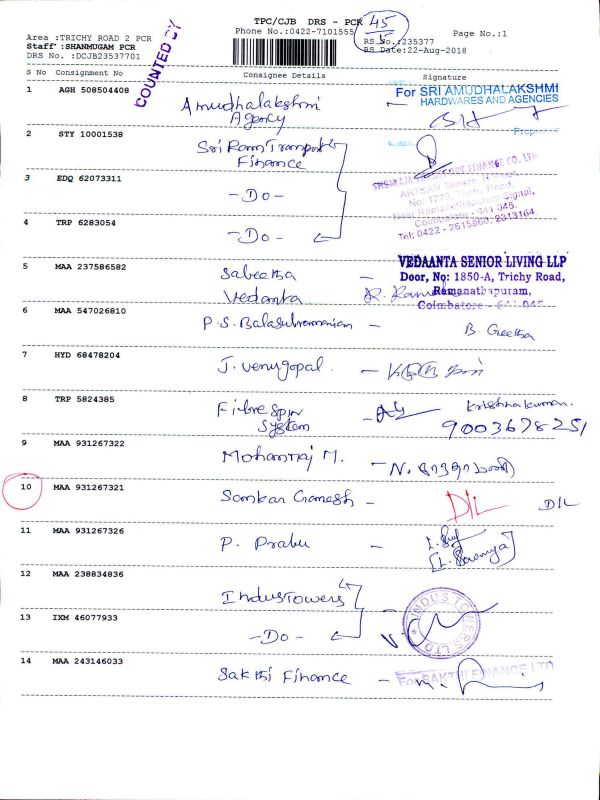 TPC/CJB DRS - PCR
Phone No.:0422-7101555
45
5
Page No.:1
Area :TRICHY ROAD 2 PCR
Staff :SHANMUGAM PCR
DRS No. :DCJB23537701
RS No.:235377
RS Date:22-Aug-2018
COUNTED BY
S No Consignment No Consignee Details Signature
1 AGH 508504408 Amudhalakshmi
Agency
For SRI AMUDHALAKSHMI
HARDWARES AND AGENCIES
2 STY 10001538 Sri Ram Transport
Finance
3 EDQ 62073311 - Do -
4 TRP 6283054 - Do -
Tel: 0422 - 2615660, 2313164.
5 MAA 237586582 Sabeetha -
Vedanta
VEDAANTA SENIOR LIVING LLP
Door, No: 1850-A, Trichy Road,
Ramanathapuram,
Coimbatore - 641 045
6 MAA 547026810 P.S. Balasubramanian - B. Geetha
7 HYD 68478204 J. Venugopal -
8 TRP 5824385 Fibre Spin
System
Krishnakumar.
9003678251
9 MAA 931267322 Mohanraj M. - N.
10 MAA 931267321 Somkar Ganesh - DIL DIL
11 MAA 931267326 P. Prabu -
[L. Sowmya]
12 MAA 238834836 Indus Towers
13 IXM 46077933 - Do -
INDUS TOWERS LTD
14 MAA 243146033 Sakthi Finance -
For SAKTHI FINANCE LTD